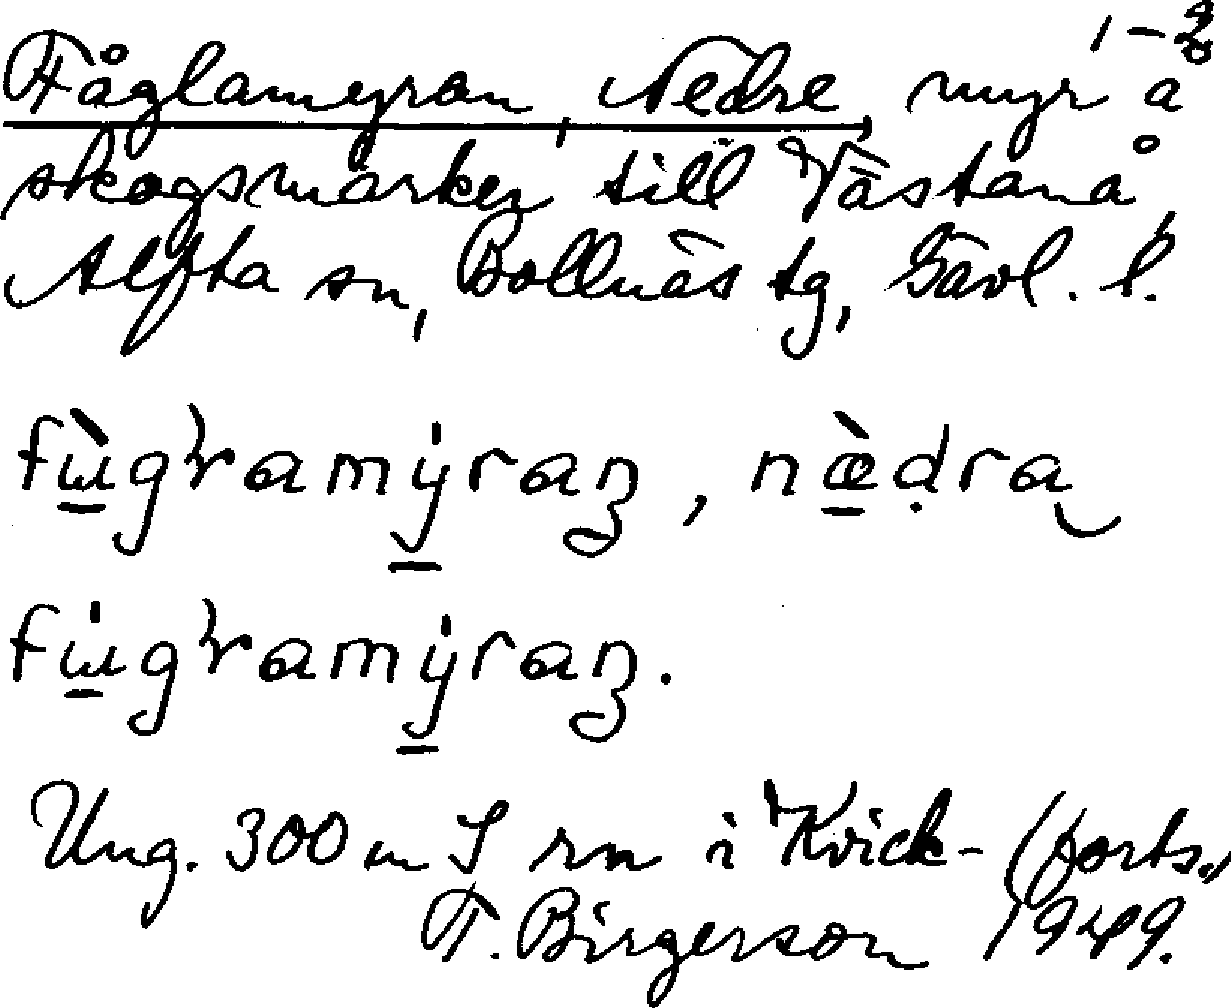 1-2
Fåglamyran, Nedre, myr å
skogsmarken till Västanå,
Alfta sn, Bollnäs tg, Gävl. l.
fɯ̀gɽamýraɳ, næ̀ḍra
fɯ́gɽamýraɳ.
Ung. 300 m S rm i Kvick- (forts.)
T. Birgerson 1949.